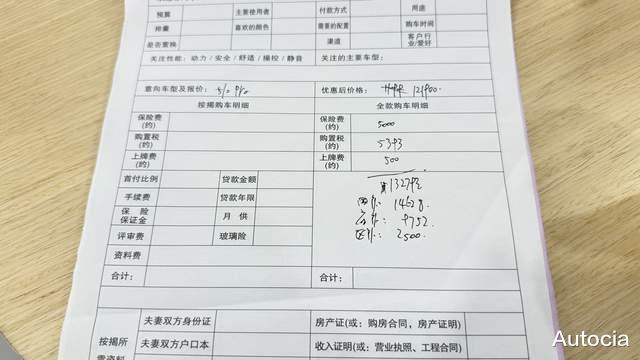 预算 主要使用者 付款方式 用途
排量 喜欢的颜色 需要的配置 购车时间
是否置换 渠道 客户行业/爱好
关注性能：动力/安全/舒适/操控/静音 关注的主要车型：
意向车型及报价： 优惠后价格： 121900.
按揭购车明细 全款购车明细
保险费(约) 保险费(约) 5000
购置税(约) 购置税(约) 5393
上牌费(约) 上牌费(约) 500
首付比例 贷款金额 132793
手续费 贷款年限 14628.
保险保证金 月供 9752
评审费 玻璃险 2500.
资料费
合计： 合计：
夫妻双方身份证 房产证(或：购房合同，房产证明)
按揭所需资料 夫妻双方户口本 收入证明(或：营业执照、工程合同)
Autocia